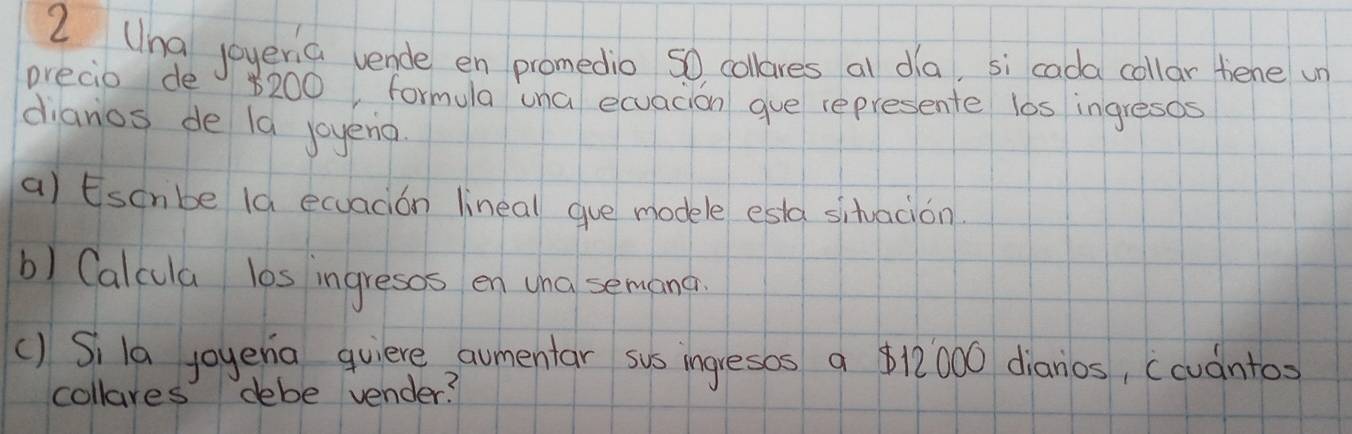 2 Una joyería vende en promedio 50 collares al día, si cada collar tiene un
precio de $200, formula una ecuación que represente los ingresos
diarios de la joyería.
a) Escribe la ecuación lineal que modele esta situación.
b) Calcula los ingresos en una semana.
c) Si la joyería quiere aumentar sus ingresos a $12'000 diarios, ¿cuántos
collares debe vender?